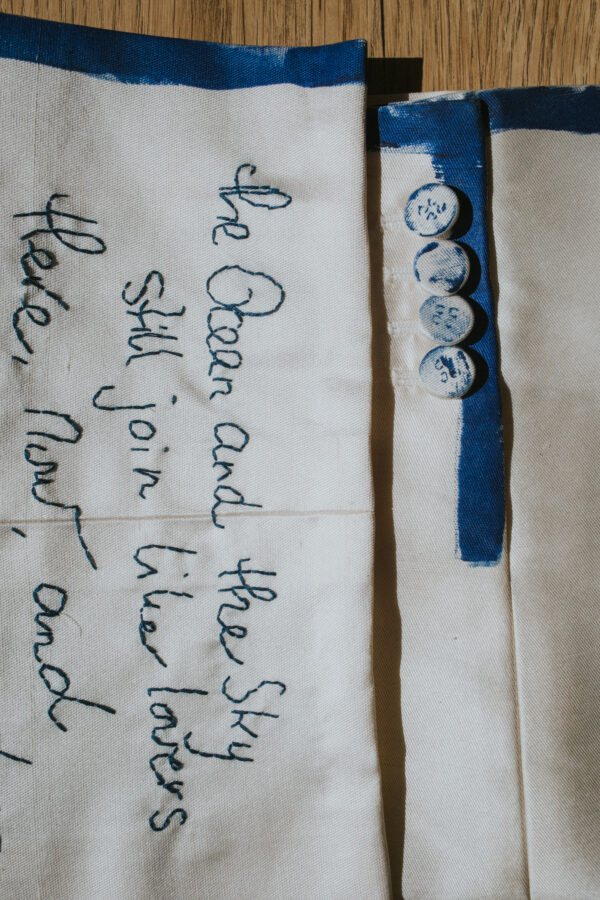 the Ocean and the Sky
still join like lovers
there, now, and